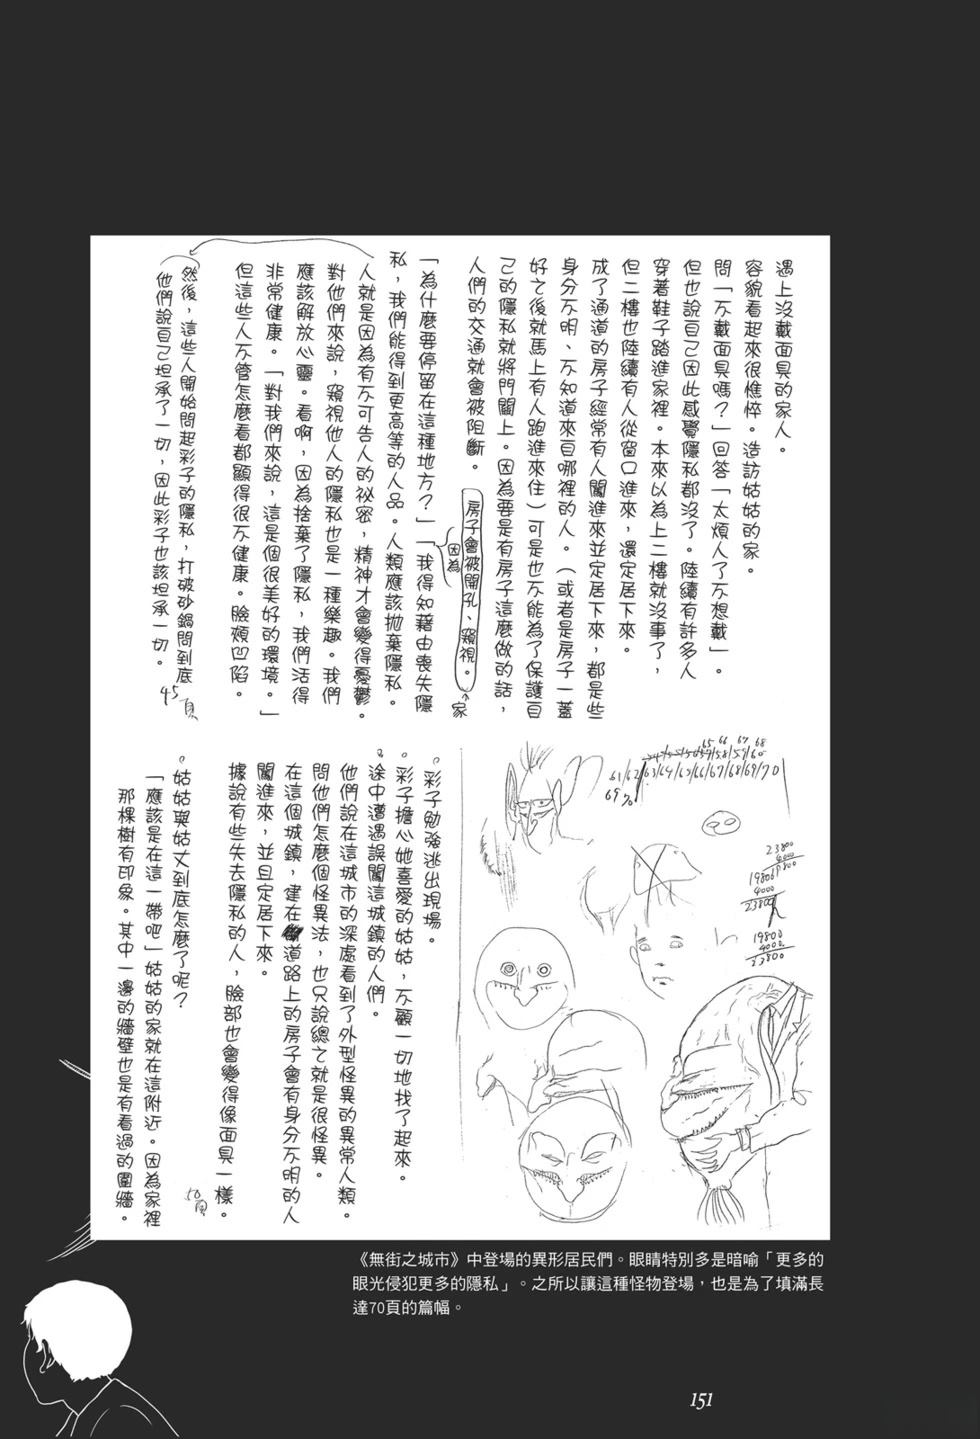 遇上沒戴面具的家人。
容貌看起來很憔悴。造訪姑姑的家。
問「不戴面具嗎？」回答「太煩人了不想戴」。
但也說自己因此感覺隱私都沒了。陸續有許多人
穿著鞋子踏進家裡。本來以為上二樓就沒事了，
但二樓也陸續有人從窗口進來，還定居下來。
成了通道的房子經常有人闖進來並定居下來，都是些
身分不明、不知道來自哪裡的人。（或者是房子一蓋
好之後就馬上有人跑進來住）可是也不能為了保護自
己的隱私就將門關上。因為要是有房子這麼做的話，
人們的交通就會被阻斷。
房子會被開孔、窺視。
因為
家
「為什麼要停留在這種地方？」「我得知藉由喪失隱
私，我們能得到更高等的人品。人類應該拋棄隱私。
人就是因為有不可告人的祕密，精神才會變得憂鬱。
對他們來說，窺視他人的隱私也是一種樂趣。我們
應該解放心靈。看啊，因為捨棄了隱私，我們活得
非常健康。「對我們來說，這是個很美好的環境。」
但這些人不管怎麼看都顯得很不健康。臉頰凹陷。
然後，這些人開始問起彩子的隱私，打破砂鍋問到底
他們說自己坦承了一切，因此彩子也該坦承一切。
45頁
65 66 67 68
61/62/63/64/65/66/67/68/69/70
69 70
23800
4000
19800
4000
23800
19800
4000
23800
。彩子勉強逃出現場。
。彩子擔心她喜愛的姑姑，不顧一切地找了起來。
。途中遭遇誤闖這城鎮的人們。
他們說在這城市的深處看到了外型怪異的異常人類。
問他們怎麼個怪異法，也只說總之就是很怪異。
在這個城鎮，建在道路上的房子會有身分不明的人
闖進來，並且定居下來。
據說有些失去隱私的人，臉部也會變得像面具一樣。
50頁
。姑姑與姑丈到底怎麼了呢？
「應該是在這一帶吧」姑姑的家就在這附近。因為家裡
那棵樹有印象。其中一邊的牆壁也是有看過的圍牆。
《無街之城市》中登場的異形居民們。眼睛特別多是暗喻「更多的
眼光侵犯更多的隱私」。之所以讓這種怪物登場，也是為了填滿長
達70頁的篇幅。
151